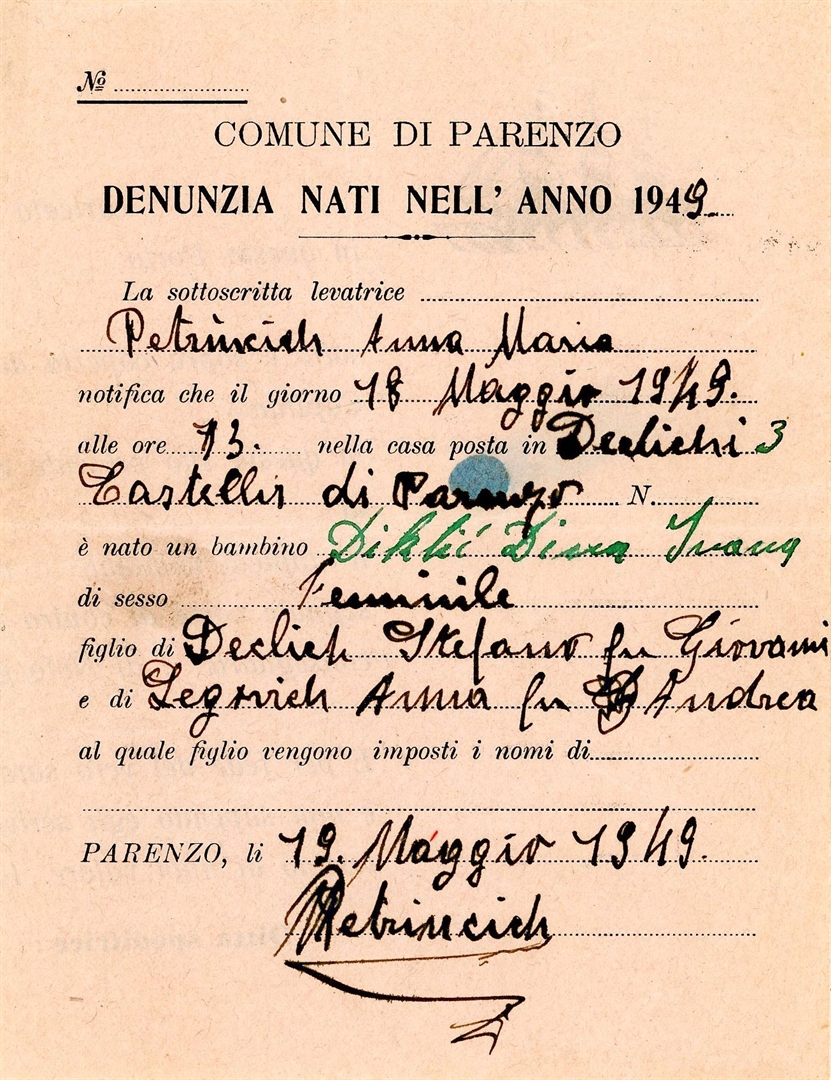 Nº
COMUNE DI PARENZO
DENUNZIA NATI NELL' ANNO 1949
La sottoscritta levatrice
Petrincich Anna Maria
notifica che il giorno 18 Maggio 1949.
alle ore 13. nella casa posta in Declichi 3
Castellir di Parenzo N.
è nato un bambino Diklić Dina Ivana
di sesso Femminile
figlio di Declich Stefano fu Giovanni
e di Legovich Anna fu Andrea
al quale figlio vengono imposti i nomi di
PARENZO, li 19. Maggio 1949.
Petrincich